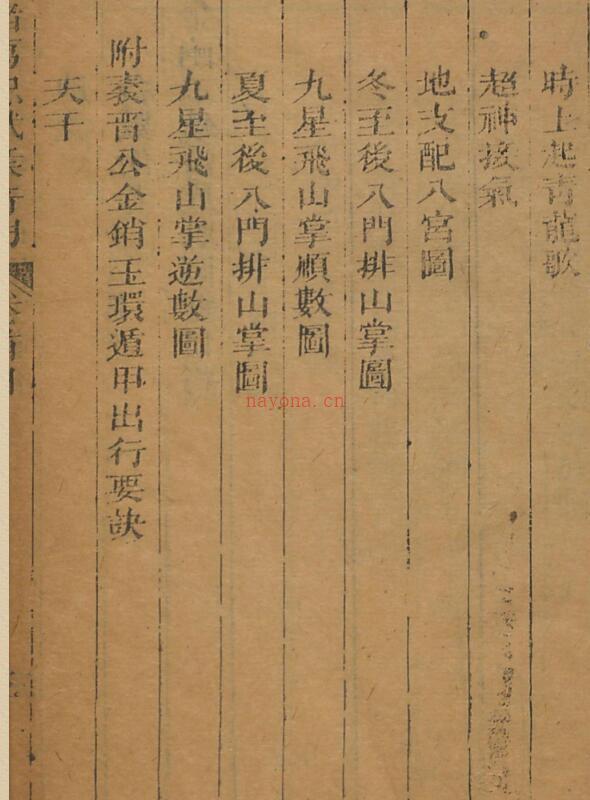 時上起青龍歌
超神接氣
地支配八宮圖
冬至後八門排山掌圖
九星飛山掌順數圖
夏至後八門排山掌圖
九星飛山掌逆數圖
附裴晋公金銷玉環遁甲出行要訣
天干
nayona.cn